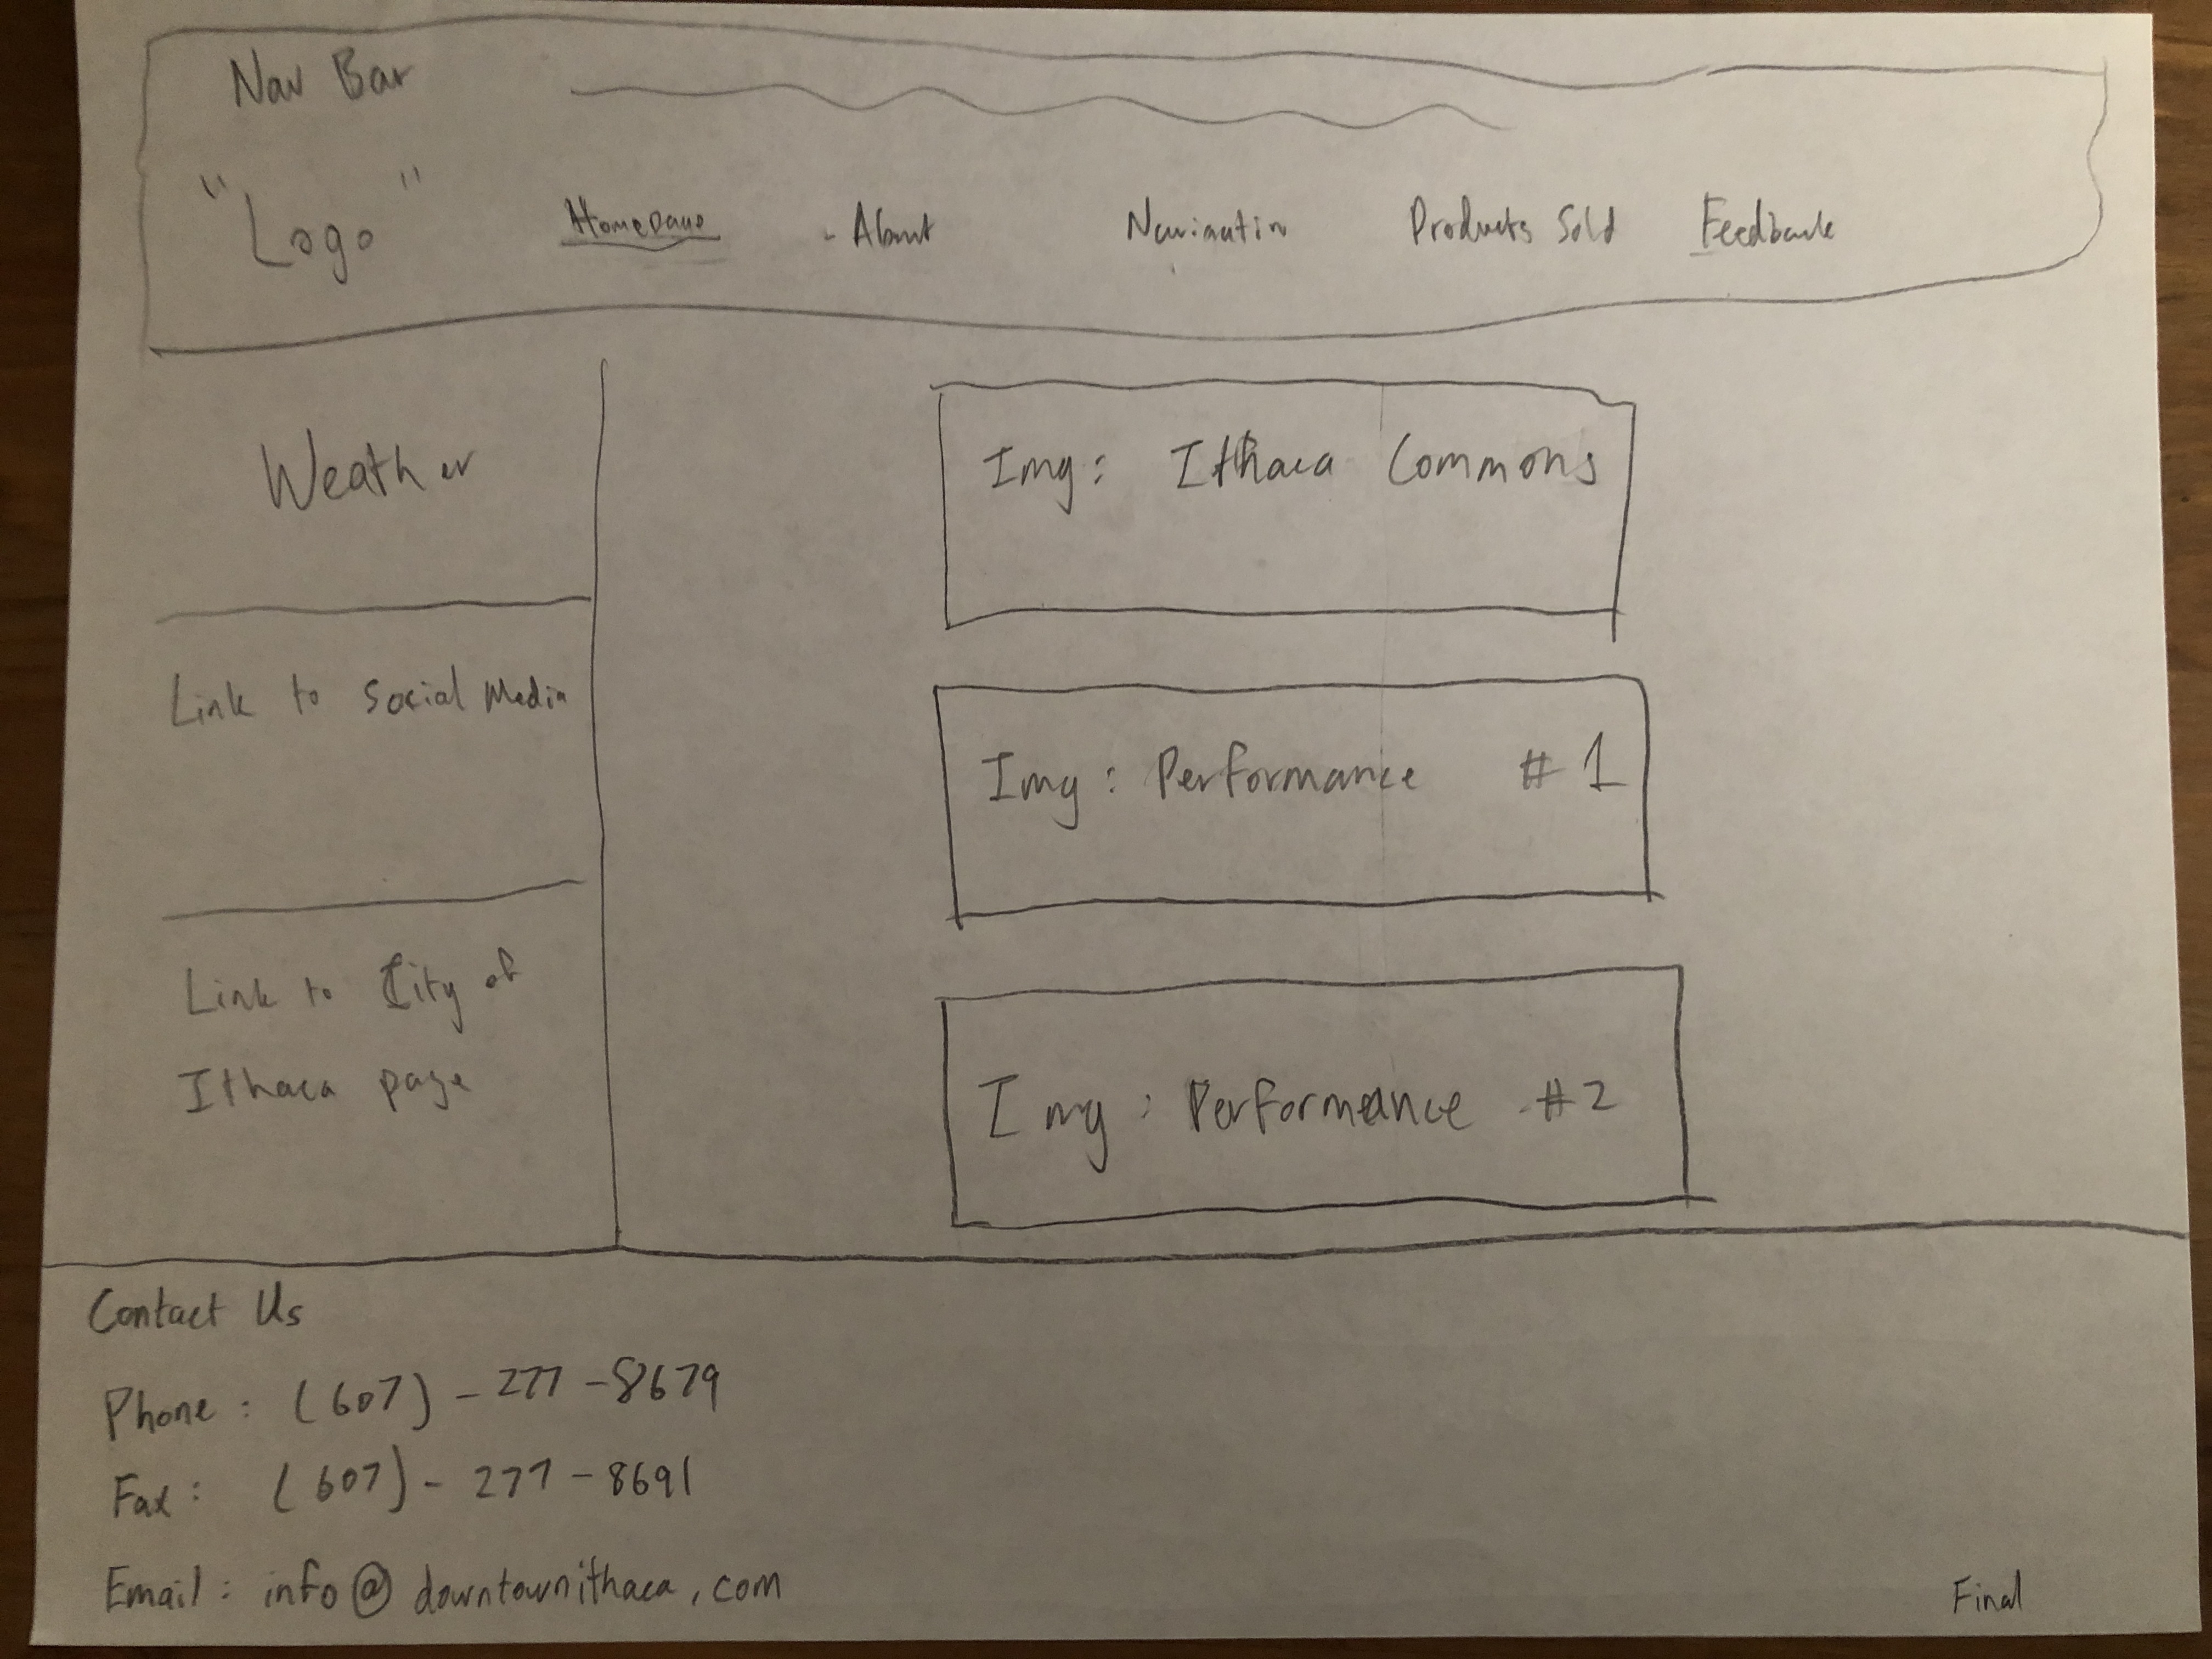 Nav Bar
"Logo" Homepage - About Navigation Products Sold Feedback
Weather
Link to Social Media
Link to City of
Ithaca page
Img: Ithaca Commons
Img: Performance #1
Img: Performance #2
Contact Us
Phone: (607) - 277 - 8679
Fax: (607) - 277 - 8691
Email: info@downtownithaca.com
Final